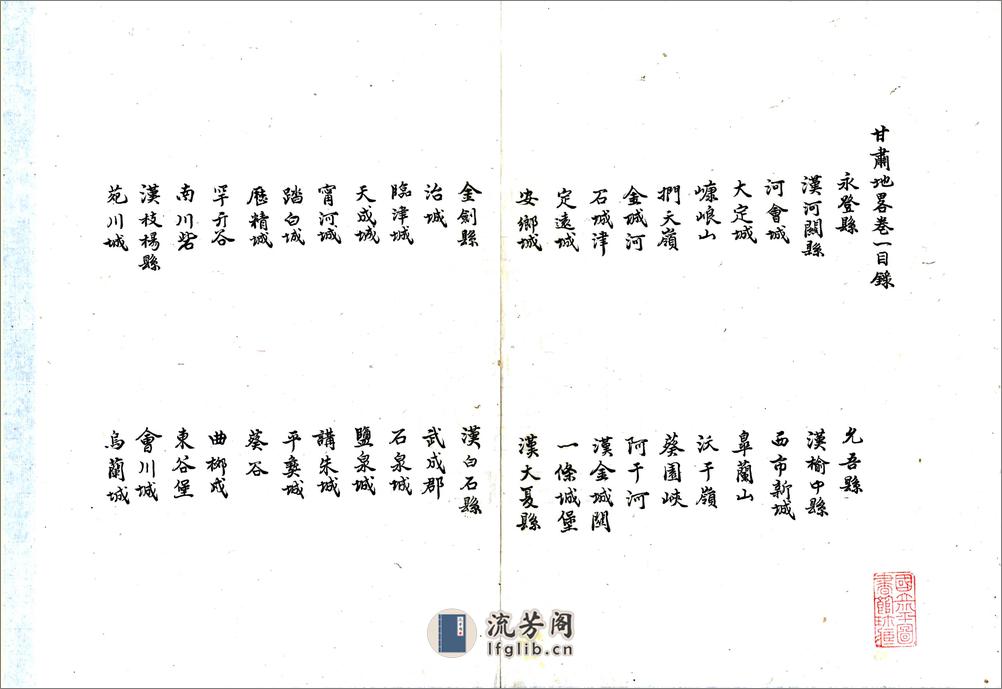 甘肅地畧卷一目錄
永登縣 允吾縣
漢河關縣 漢榆中縣
河會城 西市新城
大定城 皐蘭山
嵻㟍山 沃干嶺
捫天嶺 葵園峽
金城河 阿干河
石城津 漢金城關
定遠城 一條城堡
安鄉城 漢大夏縣
金劍縣 漢白石縣
治城 武成郡
臨津城 石泉城
天成城 鹽泉城
甯河城 講朱城
踏白城 平夷城
歷精城 葵谷
罕幵谷 曲柳戍
南川砦 東谷堡
漢枝楊縣 會川城
苑川城 烏蘭城
國立北平圖
書館珍藏
流芳阁
lfglib.cn